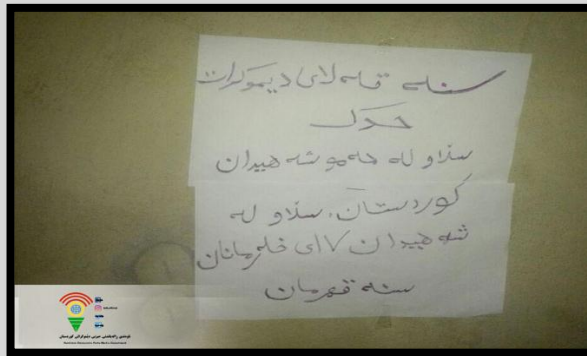 سنه قه‌لای دیموکرات
حدک
سڵاو له هه‌مو شه‌هیدان
کوردستان، سڵاو له
شه‌هیدان ٧ای خه‌رمانان
سنه قه‌رمان